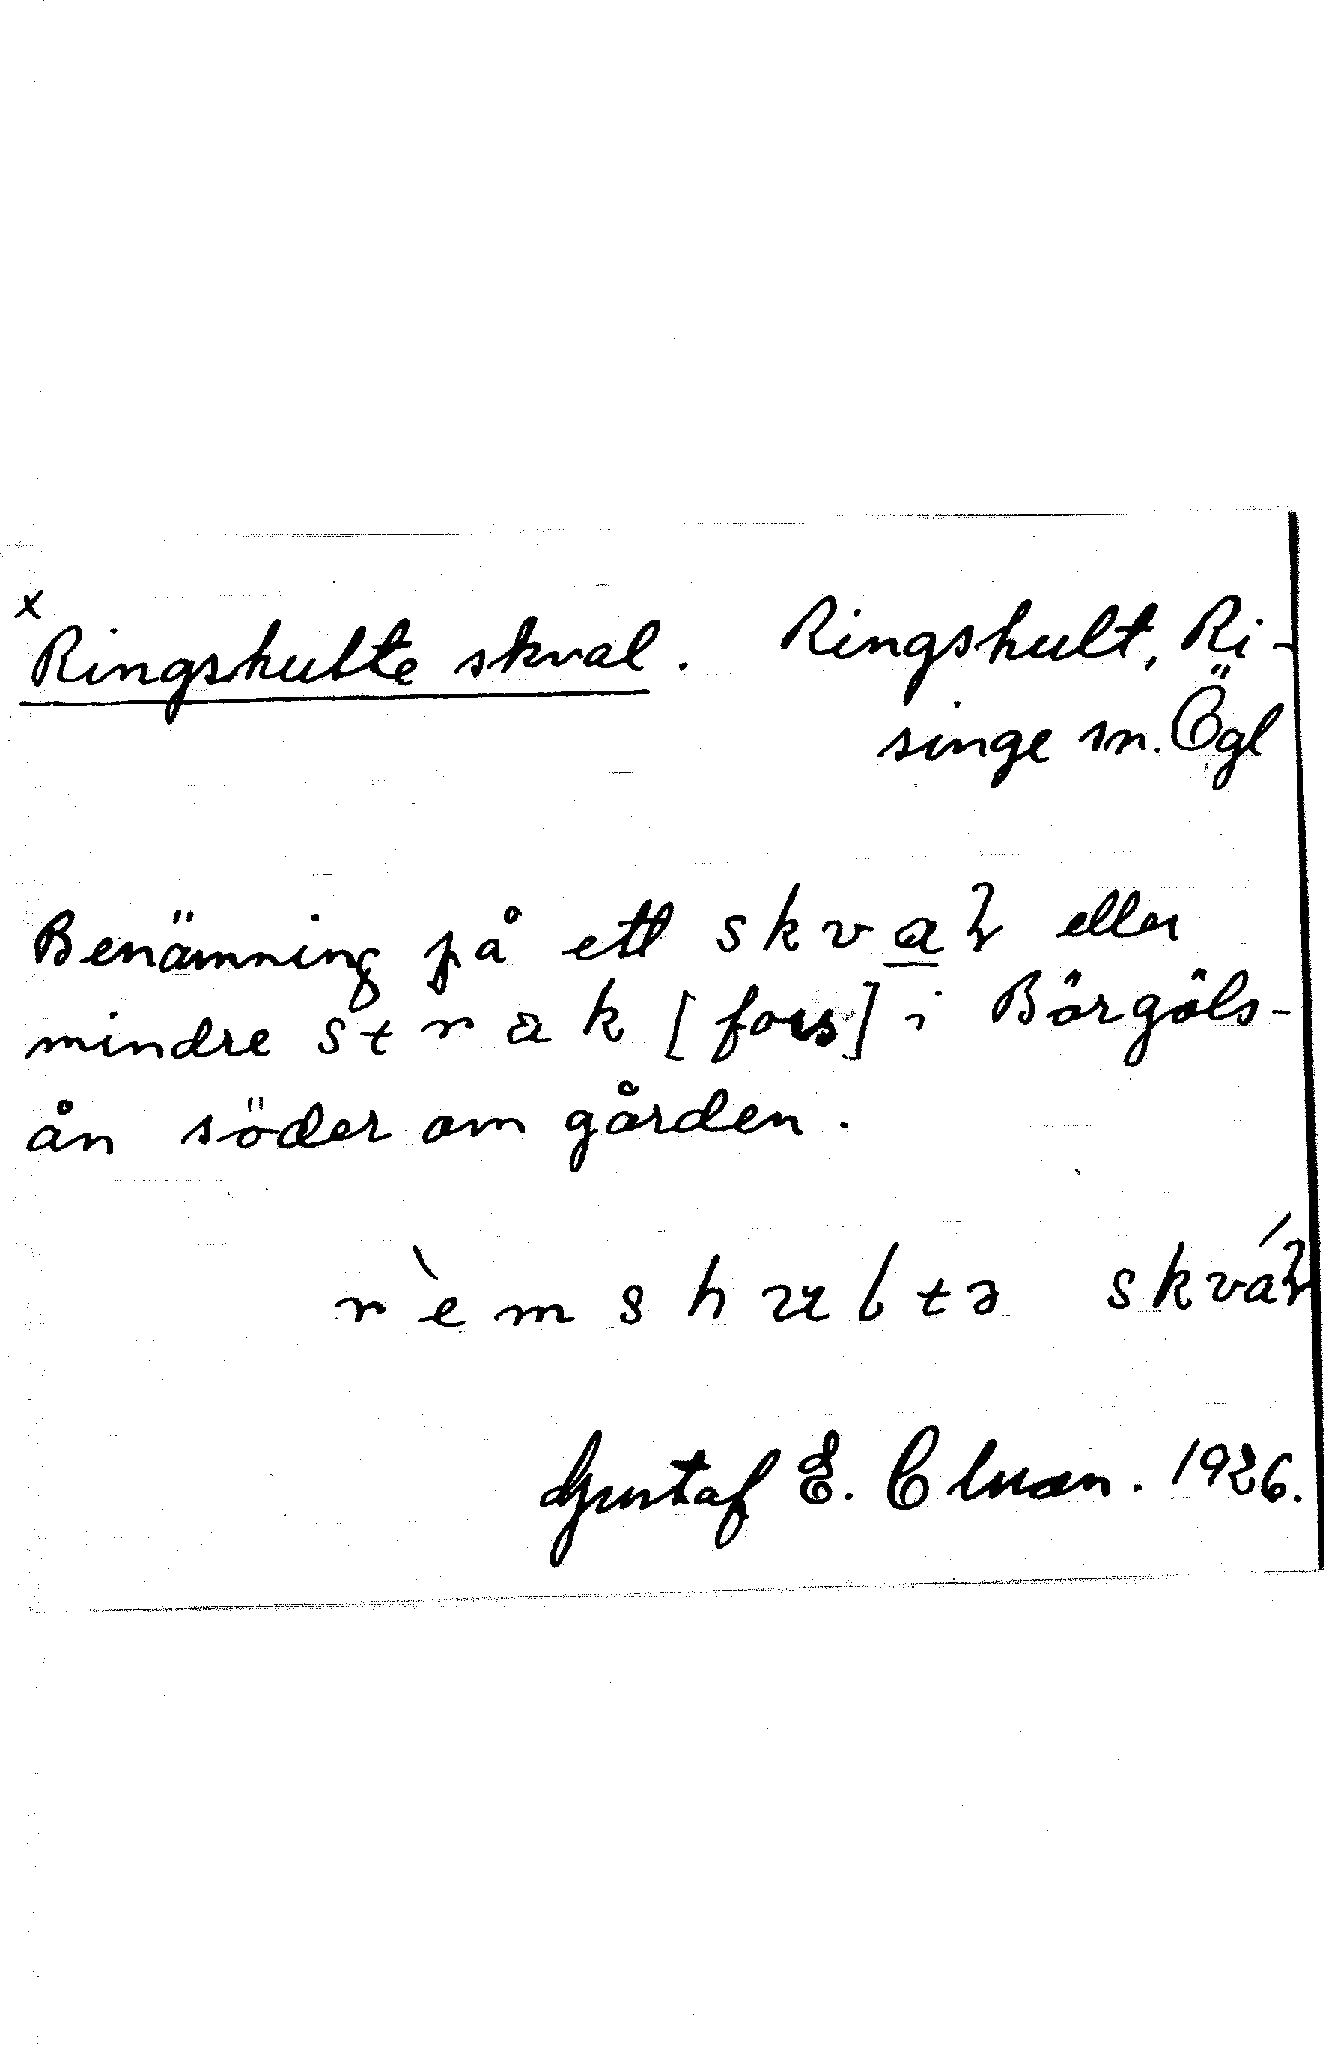 x
Ringshulte skval. Ringshult, Ri-
singe sn. Ögl
Benämning på ett skvaɽ eller
mindre strak [fors] i Börgöls-
ån söder om gården.
r`emshultə skváɽ
Gustaf E. Clason. 1926.